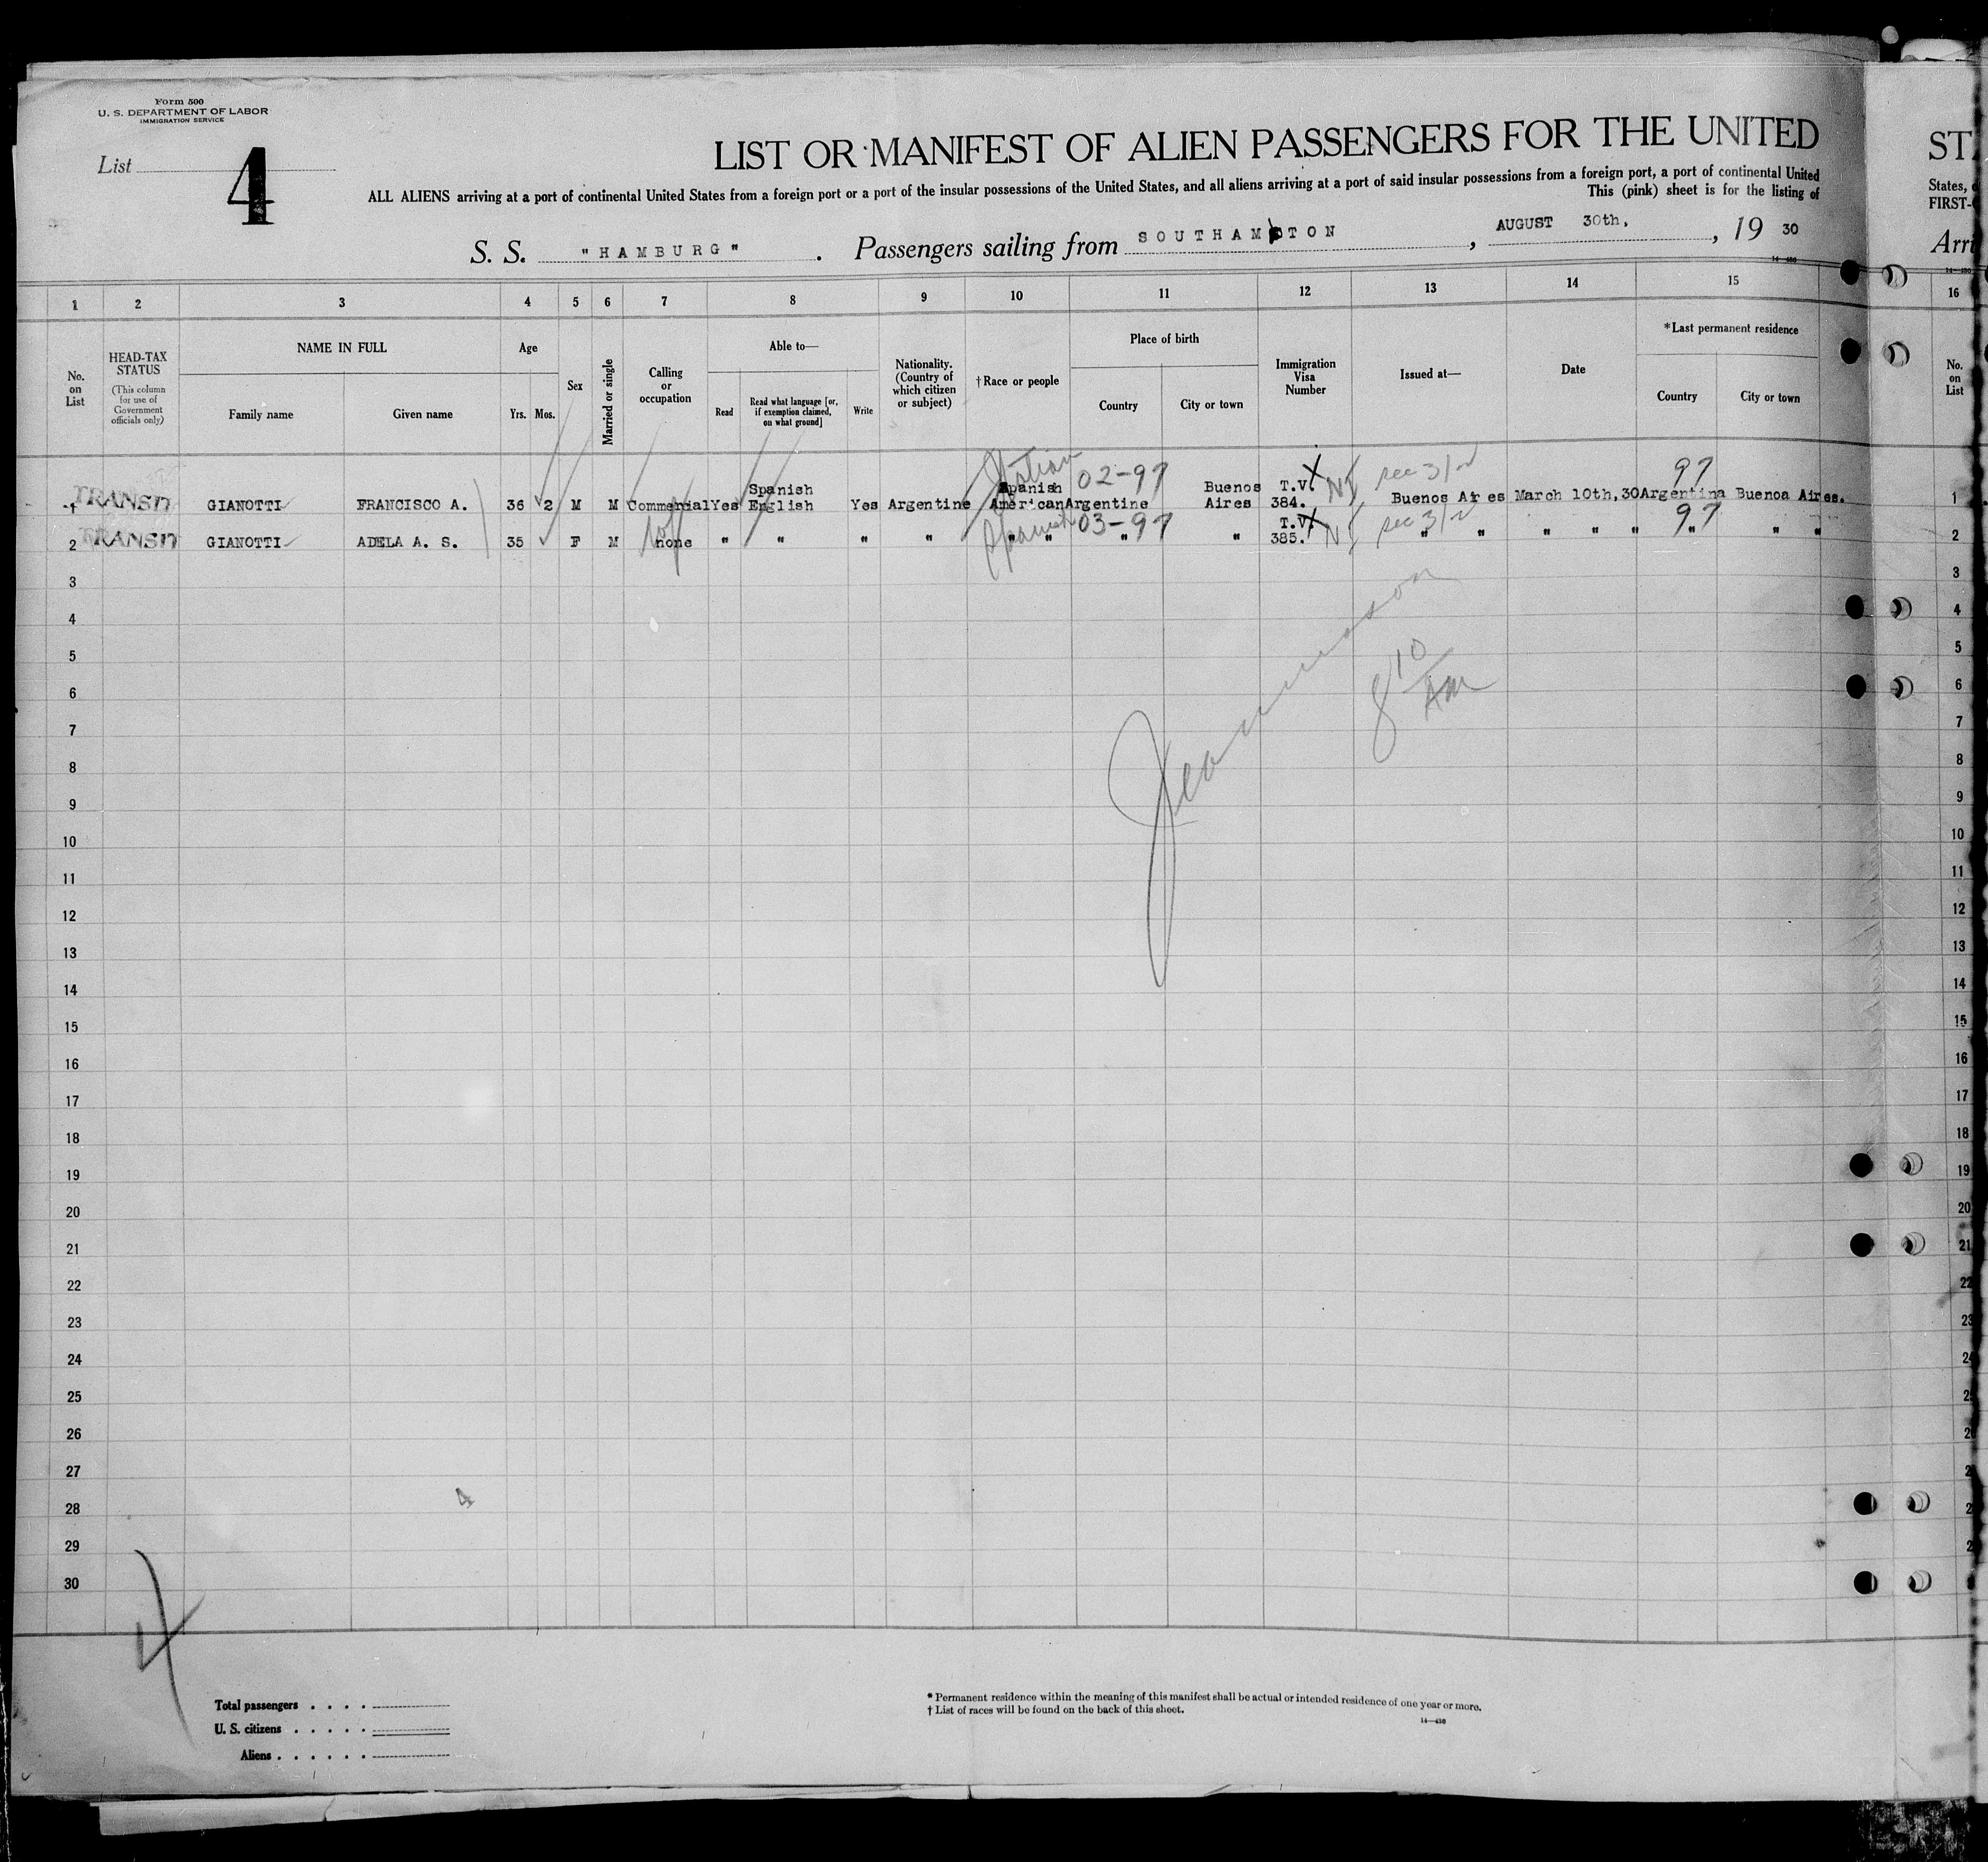 Form 500
U. S. DEPARTMENT OF LABOR
IMMIGRATION SERVICE
List 4
LIST OR MANIFEST OF ALIEN PASSENGERS FOR THE UNITED
ALL ALIENS arriving at a port of continental United States from a foreign port or a port of the insular possessions of the United States, and all aliens arriving at a port of said insular possessions from a foreign port, a port of continental United
This (pink) sheet is for the listing of
S. S. "HAMBURG". Passengers sailing from SOUTHAMPTON, AUGUST 30th, 19 30
14-430
ST
States,
FIRST-
Arri
1 2 3 4 5 6 7 8 9 10 11 12 13 14 15 16
No. on List
HEAD-TAX STATUS
(This column for use of Government officials only)
NAME IN FULL
Family name
Given name
Age
Yrs. Mos.
Sex
Married or single
Calling or occupation
Able to—
Read
Read what language [or, if exemption claimed, on what ground]
Write
Nationality. (Country of which citizen or subject)
†Race or people
Place of birth
Country
City or town
Immigration Visa Number
Issued at—
Date
*Last permanent residence
Country
City or town
No. on List
Italian 02-97 97
1 TRANSIT GIANOTTI FRANCISCO A. 36 2 M M Commercial Yes Spanish English Yes Argentine Spanish American Argentine Buenos Aires T.V. 384. Buenos Aires March 10th,30 Argentina Buenoa Aires. 1
Spanish 03-97 97
2 TRANSIT GIANOTTI ADELA A. S. 35 F M none " " " " " " " " T.V. 385. " " " " " " " " 2
3 3
4 4
5 5
6 6
7 7
8 8
9 9
10 10
11 11
12 12
13 13
14 14
15 15
16 16
17 17
18 18
19 19
20 20
21 21
22 22
23 23
24
25
26
27
28
29
30
8 10 AM
4
4
Total passengers . . . .
U. S. citizens . . . . .
Aliens . . . . . .
* Permanent residence within the meaning of this manifest shall be actual or intended residence of one year or more.
† List of races will be found on the back of this sheet.
14-430